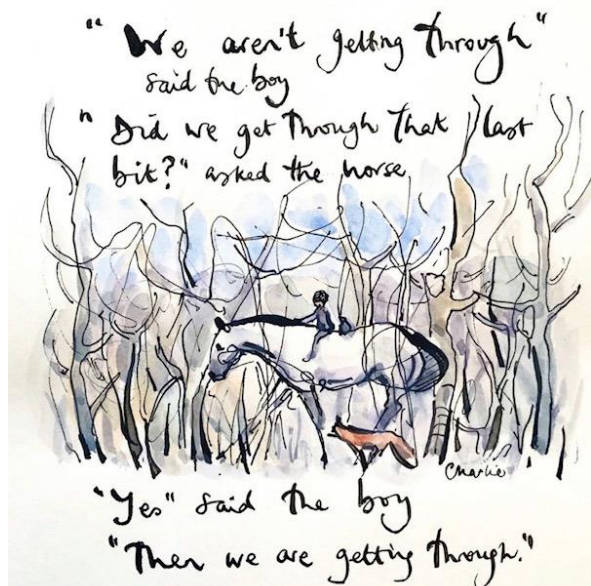 "We aren't getting through"
said the boy
"Did we get through that last
bit?" asked the horse
Charlie
"Yes" said the boy
"Then we are getting through."